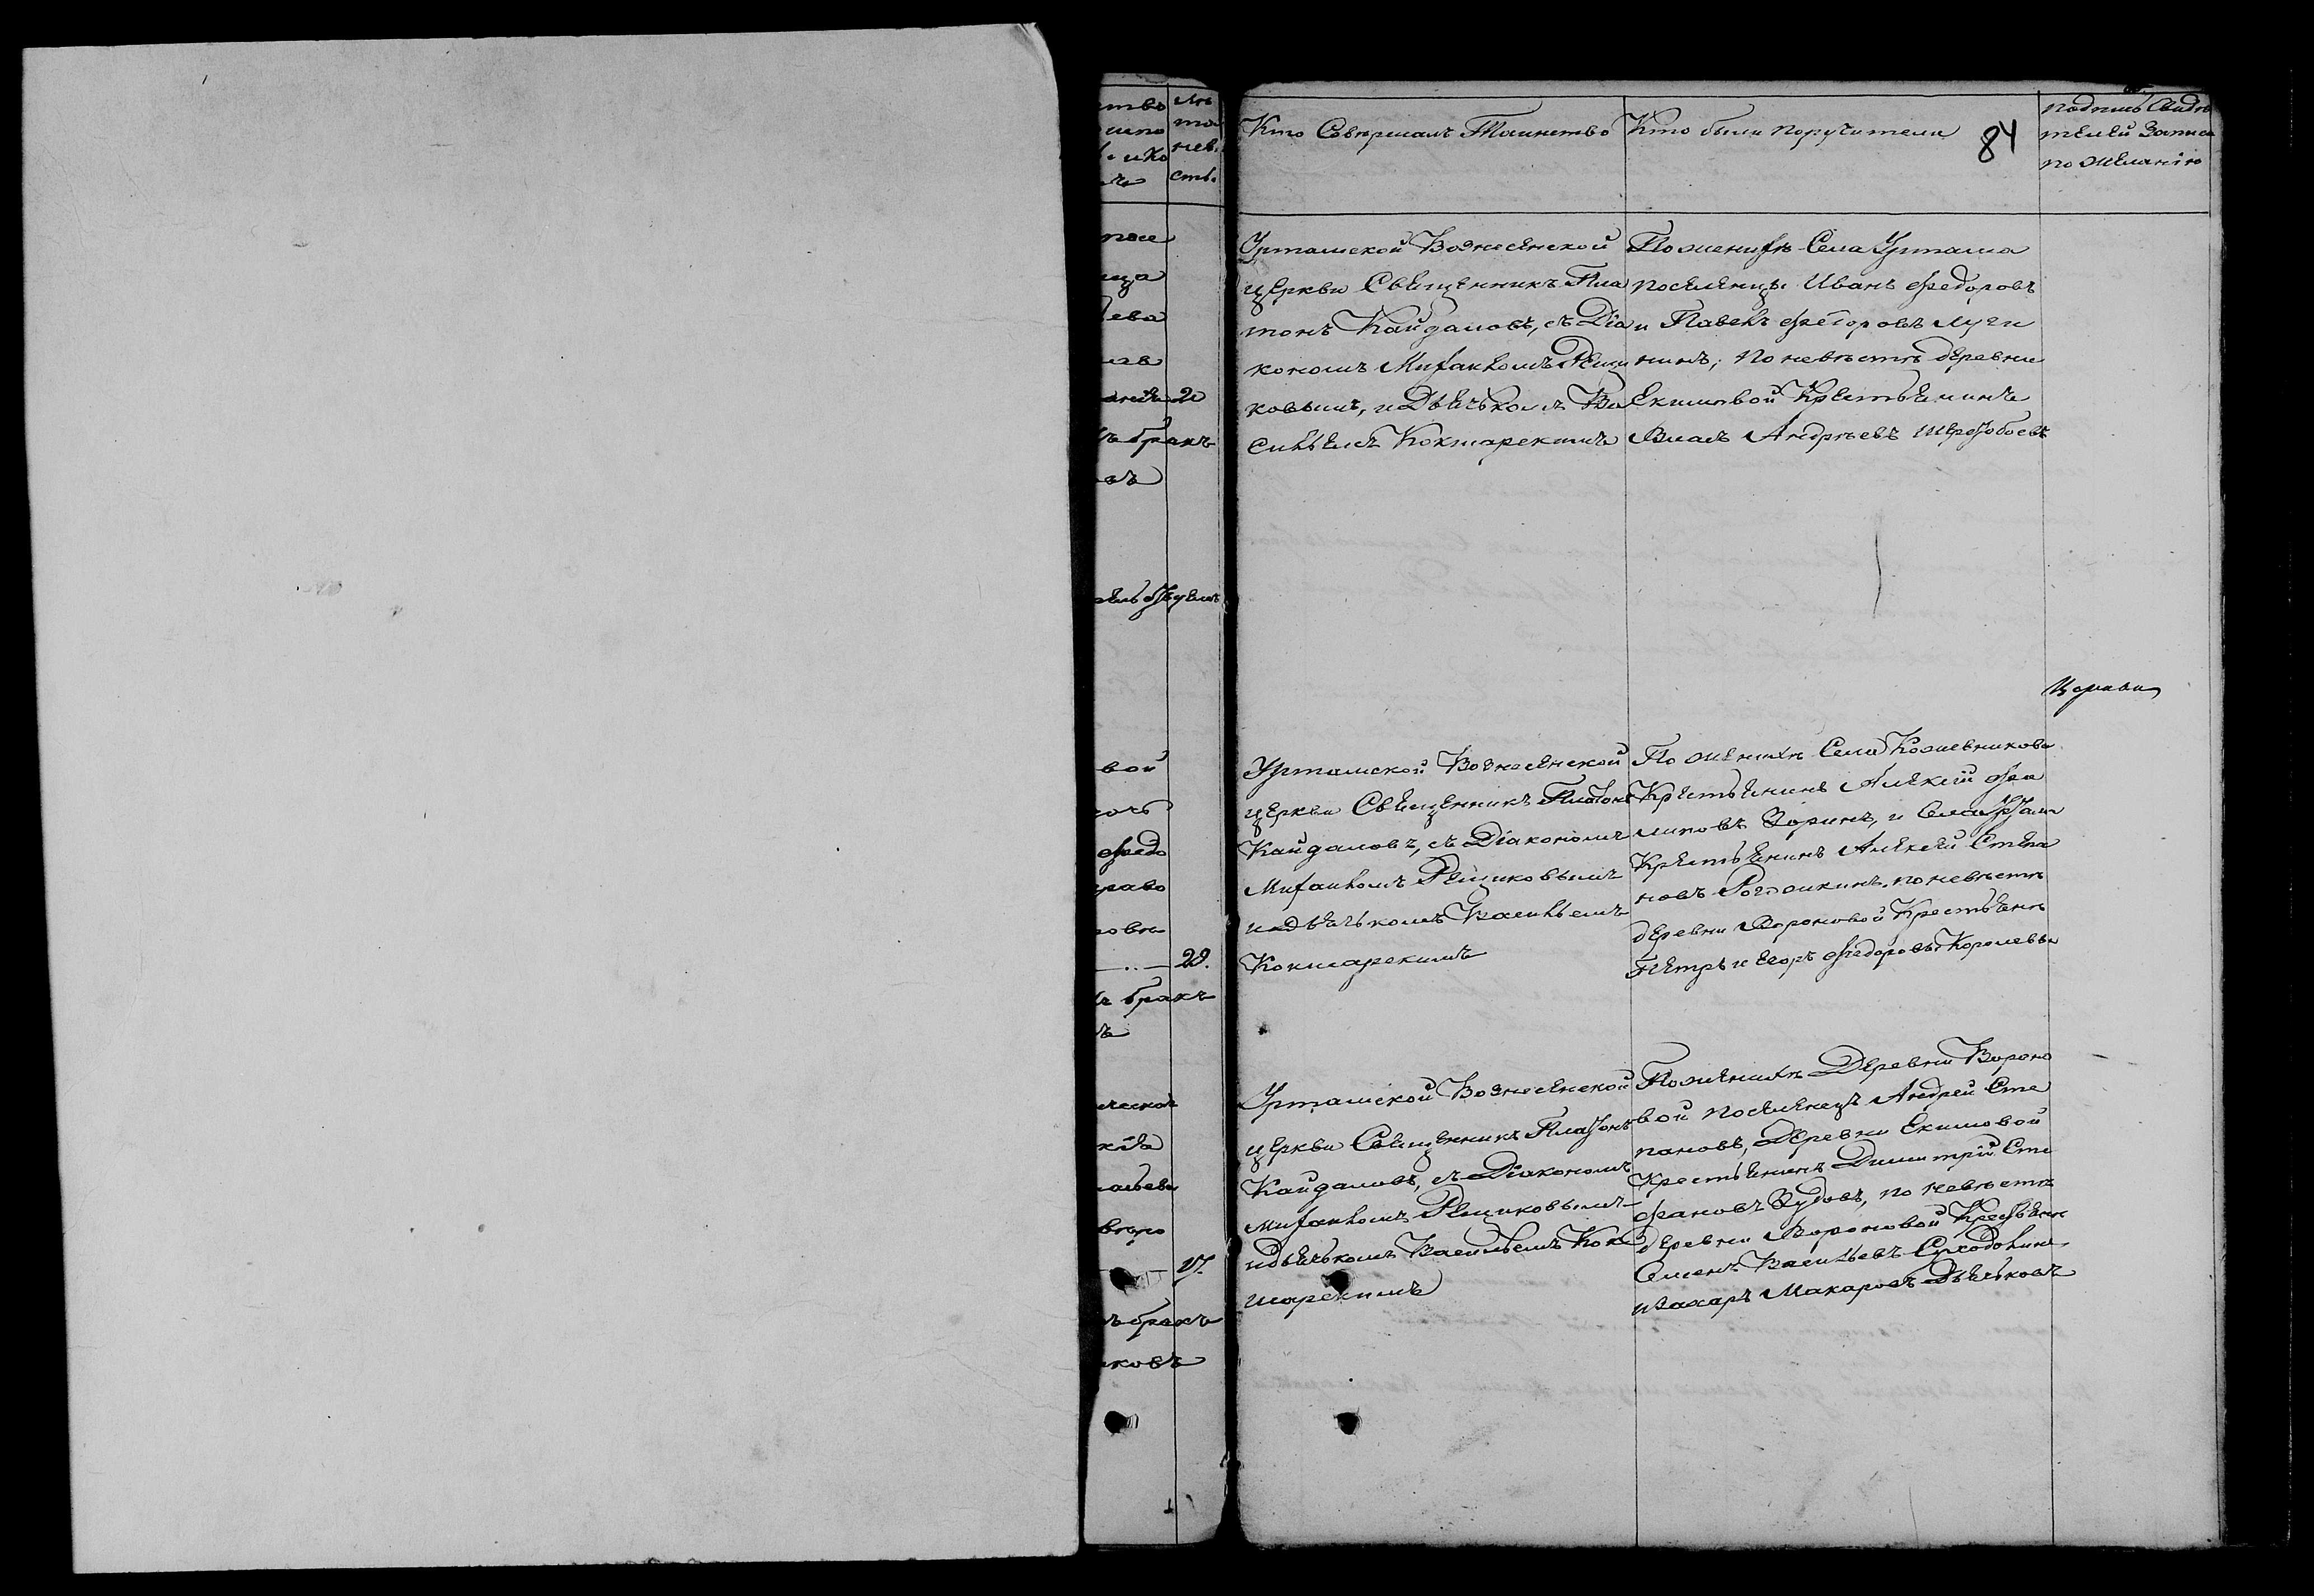 Кто Совершалъ Таинство
Кто были поручители
84
подпись Свидѣ
телей Записи
по желанію
лѣ
та
нев.
сть.
Урташской Вознесенской
церкви Священникъ Пла
тонъ Кайдаловъ, съ Діа
кономъ Михаиломъ Рещи
ковымъ, и Дьячькомъ Ва
сильемъ Кокшарскимъ
По женихѣ Села Уртама
поселенцы Иванъ Федоровъ
и Павелъ Федоровъ Лучи
нинъ, по невѣстѣ деревни
Екимовой Крестьенинъ
Власъ Андрѣевъ
20
ъ бракъ
Церкви
Урташской Вознесенской
церкви Священникъ Платонъ
Кайдаловъ, съ Діакономъ
Михаиломъ Рещиковымъ
и дьячькомъ Васильемъ
Кокшарскимъ
По женихѣ Села Кожевникова
Крестьенинъ Алексій Фи
липовъ Зоринъ, и Села Уртам
Крестьенинъ Алексей Степа
новъ по невѣстѣ
деревни Вороновой Крестьене
Петръ и Егоръ Федоровы Королевы
вой
федо
20.
бракъ
Урташской Вознесенской
церкви Священникъ Платонъ
Кайдаловъ, съ Діакономъ
Михаиломъ Рещиковымъ
и дьячькомъ Васильемъ Кок
шарскимъ
По женихѣ Деревни Вороно
вой поселенецъ Андрей Сте
пановъ, Деревни Екимовой
Крестьенинъ Димитрій Сте
фановъ Зудовъ, по невѣстѣ
деревни Вороновой Крестьене
Семенъ Васильевъ Суходолинъ
и Захаръ Макаровъ Дьячьковъ
17.
ъ бракъ
ковъ